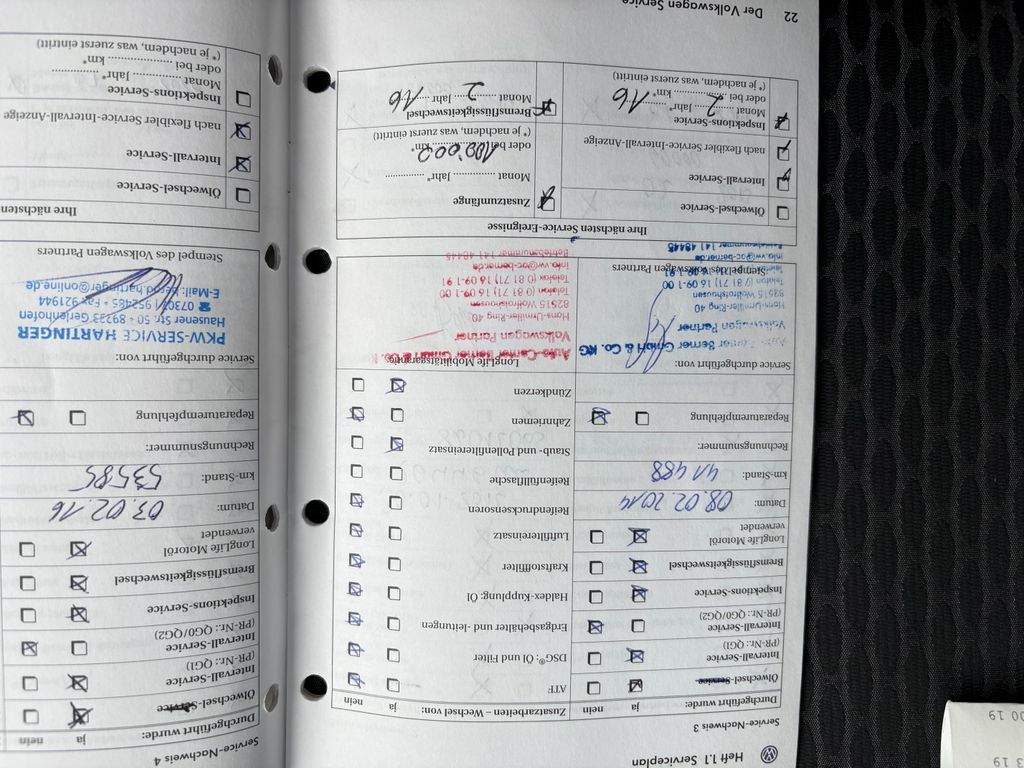 Heft 1.1 Serviceplan
Service-Nachweis 3
Durchgeführt wurde: ja nein
Ölwechsel-Service
Intervall-Service
(PR-Nr.: QG1)
Intervall-Service
(PR-Nr.: QG0/QG2)
Inspektions-Service
Bremsflüssigkeitswechsel
LongLife Motoröl
verwendet
Datum: 08.02.2014
km-Stand: 41488
Rechnungsnummer:
Reparaturempfehlung
Service durchgeführt von:
Berner GmbH & Co. KG
Volkswagen Partner
Hans-Urmiller-Ring 40
82515 Wolfratshausen
Telefon (0 81 71) 16 09-1 00
Stempel des Volkswagen Partners
info.vw@ac-berner.de
Betriebsnummer 141 48445
Zusatzarbeiten – Wechsel von: ja nein
ATF
DSG®: Öl und Filter
Erdgasbehälter und -leitungen
Haldex-Kupplung: Öl
Kraftstofffilter
Luftfiltereinsatz
Reifendrucksensoren
Reifenfüllflasche
Staub- und Pollenfiltereinsatz
Zahnriemen
Zündkerzen
LongLife Mobilitätsgarantie
Auto-Center Berner GmbH & Co. KG
Volkswagen Partner
Hans-Urmiller-Ring 40
82515 Wolfratshausen
Telefon (0 81 71) 16 09-1 00
Telefax (0 81 71) 16 09-1 91
info.vw@ac-berner.de
Betriebsnummer 141 48445
Ihre nächsten Service-Ereignisse
Ölwechsel-Service
Intervall-Service
nach flexibler Service-Intervall-Anzeige
Inspektions-Service
Monat 2 Jahr* 16
oder bei .......... km*
(* je nachdem, was zuerst eintritt)
Zusatzumfänge
Monat .......... Jahr* ..........
oder bei 100.002 km*
(* je nachdem, was zuerst eintritt)
Bremsflüssigkeitswechsel
Monat 2 Jahr 16
22 Der Volkswagen Service
Service-Nachweis 4
Durchgeführt wurde: ja nein
Ölwechsel-Service
Intervall-Service
(PR-Nr.: QG1)
Intervall-Service
(PR-Nr.: QG0/QG2)
Inspektions-Service
Bremsflüssigkeitswechsel
LongLife Motoröl
verwendet
Datum: 03.02.16
km-Stand: 53585
Rechnungsnummer:
Reparaturempfehlung
Service durchgeführt von:
PKW-SERVICE HARTINGER
Hausener Str. 50 • 89233 Gerlenhofen
☎ 07307 / 952485 • Fax 921944
E-Mail: bernd.hartinger@online.de
Stempel des Volkswagen Partners
Ihre nächsten
Ölwechsel-Service
Intervall-Service
nach flexibler Service-Intervall-Anzeige
Inspektions-Service
Monat .......... Jahr* ..........
oder bei .......... km*
(* je nachdem, was zuerst eintritt)